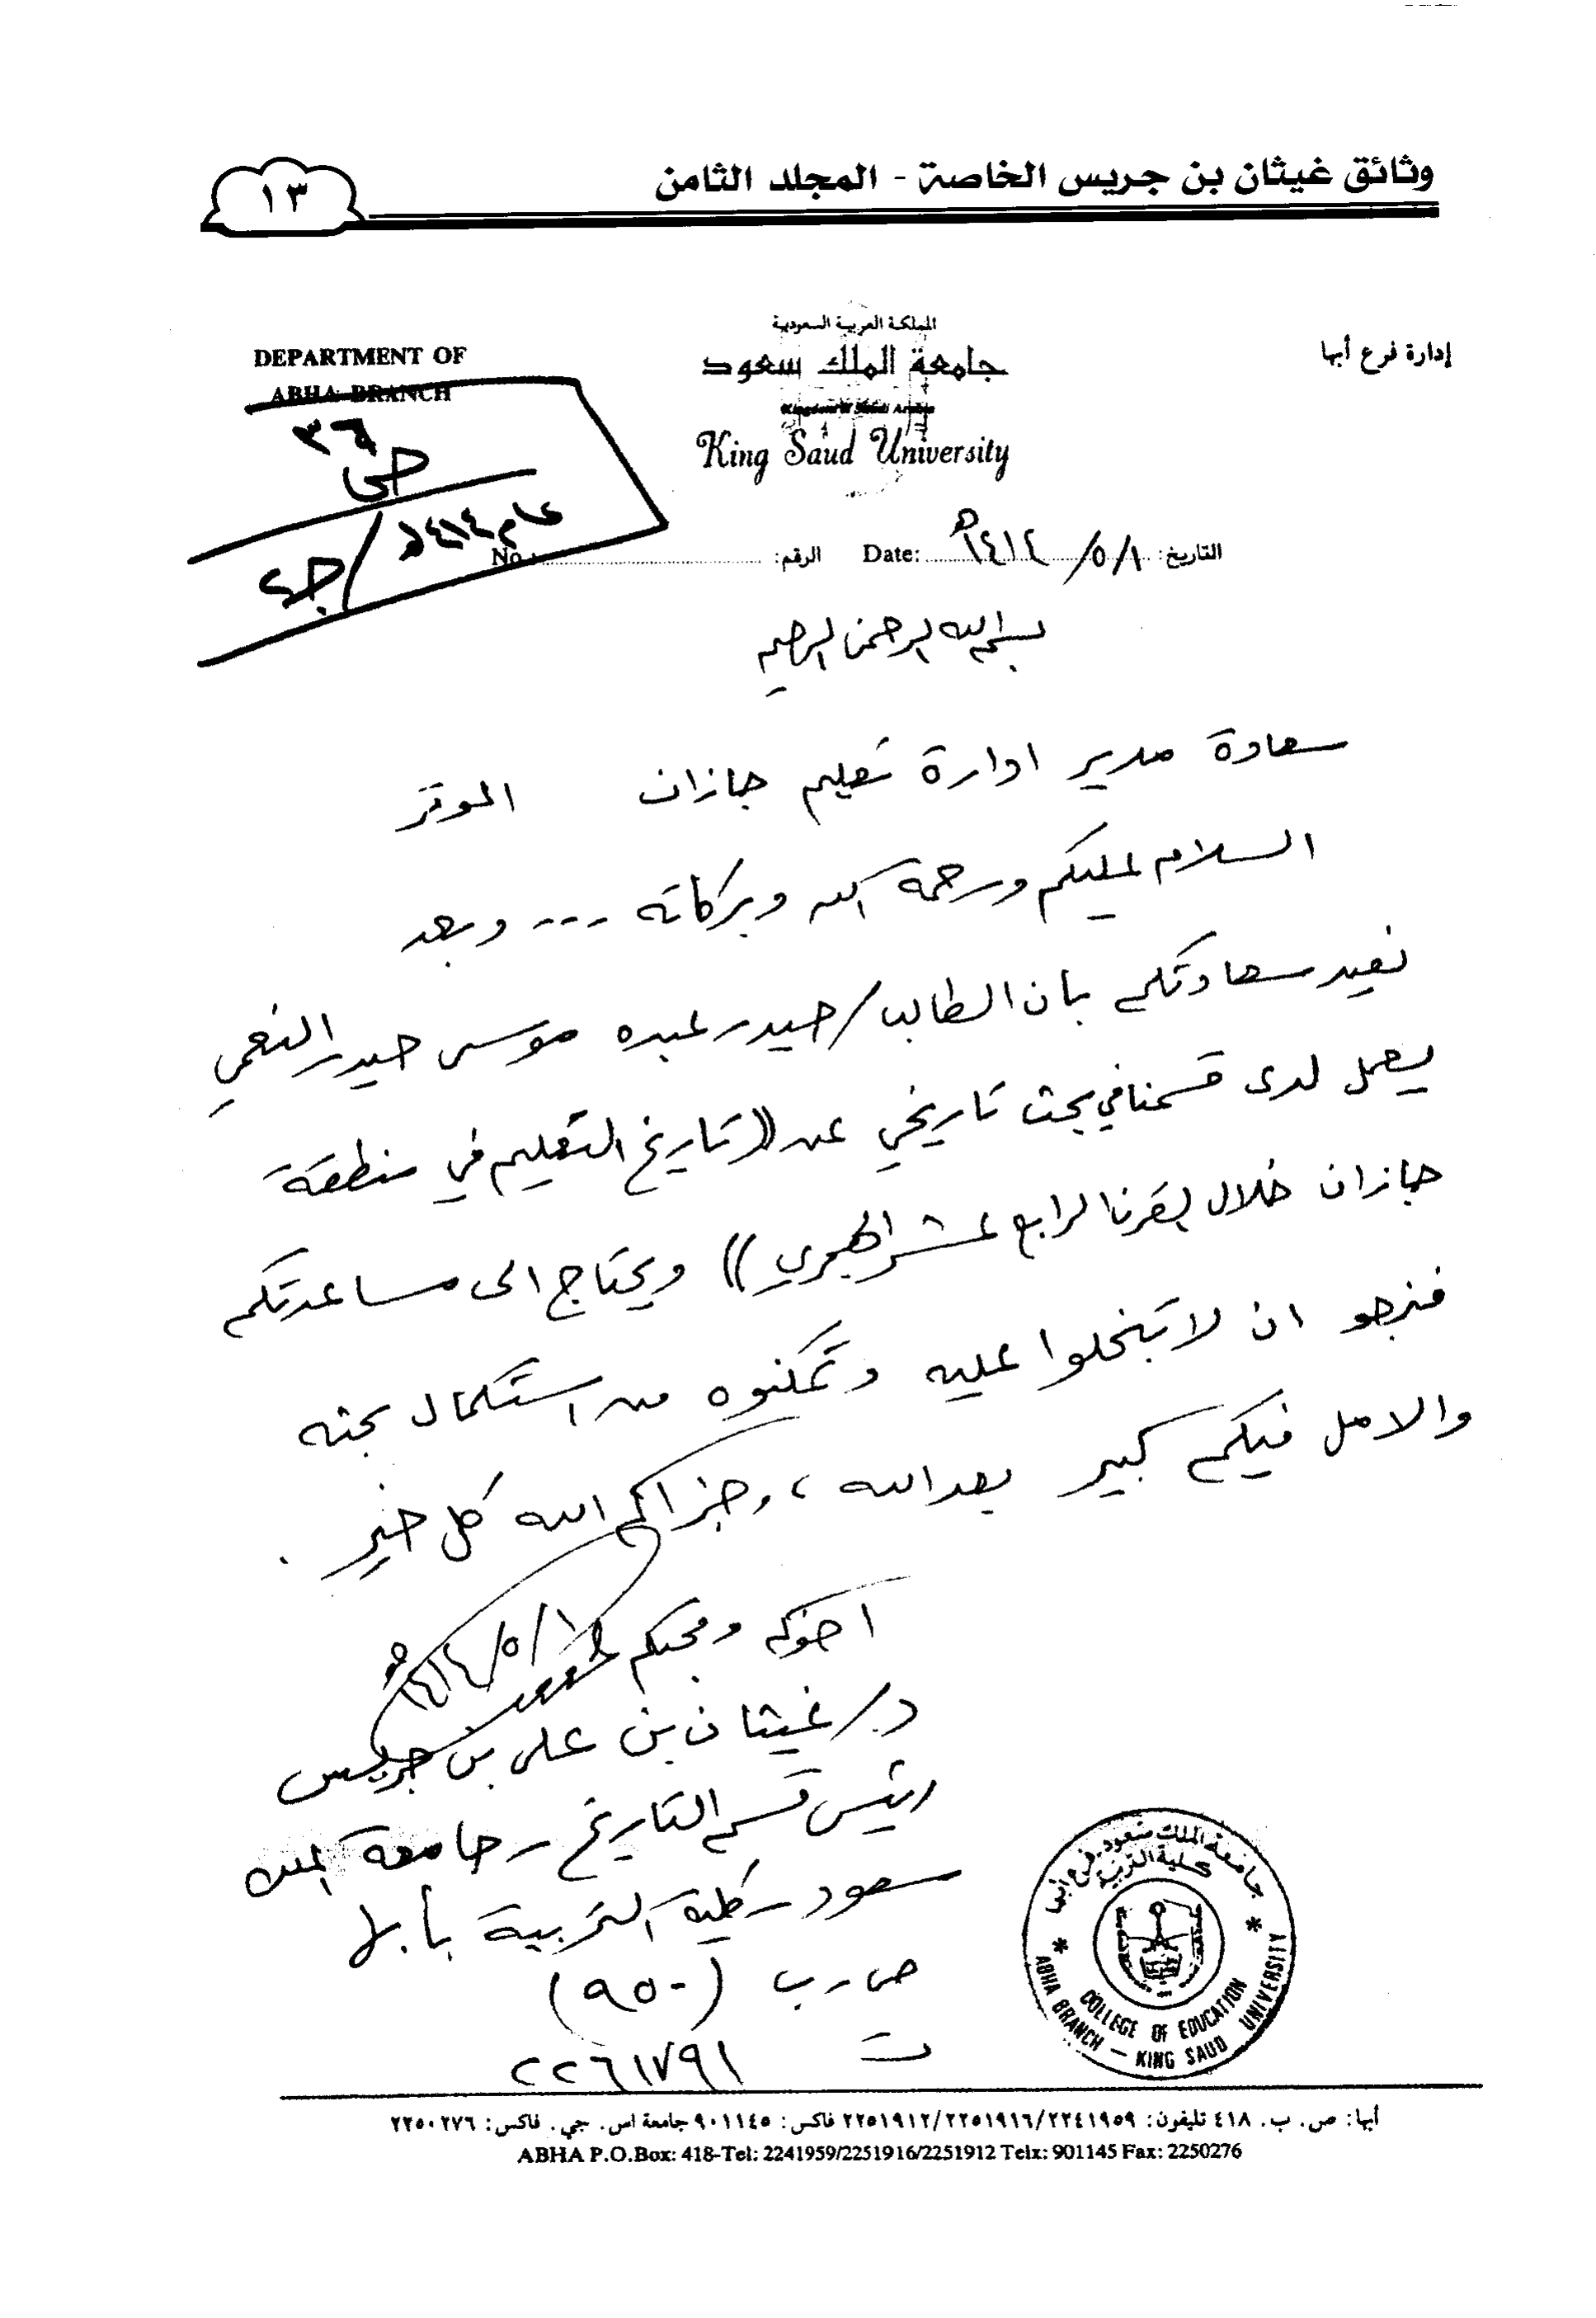 وثائق غيثان بن جريس الخاصة - المجلد الثامن
١٣
إدارة فرع أبها
المملكة العربية السعودية
جامعة الملك سعود
Kingdom of Saudi Arabia
King Saud University
DEPARTMENT OF
ABHA BRANCH
ص ٣٦
عام ١٤١٤هـ / ج٢
التاريخ: ١/ ٥/ ١٤١٤هـ Date: الرقم: No.:
بسم الله الرحمن الرحيم
سعادة مدير ادارة تعليم جازان الموقر
السلام عليكم ورحمة الله وبركاته --- وبعد
نفيد سعادتكم بان الطالب/ حيدر عبده موسى حيدر النعمي
يعمل لدى قسمنا في بحث تاريخي عن ((تاريخ التعليم في منطقة
جازان خلال القرن الرابع عشر الهجري)) ويحتاج الى مساعدتكم
فنرجو ان لا تبخلوا عليه وتمكنوه من استكمال بحثه
والامل فيكم كبير بعد الله ، وجزاكم الله كل خير .
اخوكم ومحبكم
١/ ٥/ ١٤١٤هـ
د/ غيثان بن على بن جريس
رئيس قسم التاريخ - جامعة الملك
سعود - كلية التربية بأبها
ص . ب (٩٥٠)
ت ٢٢٦١٧٩١
جامعة الملك سعود - فرع أبها
كلية التربية
COLLEGE OF EDUCATION
ABHA BRANCH - KING SAUD UNIVERSITY
أبها: ص. ب. ٤١٨ تليفون: ٢٢٤١٩٥٩/٢٢٥١٩١٦/٢٢٥١٩١٢ فاكس: ٩٠١١٤٥ جامعة اس. جي. فاكس: ٢٢٥٠٢٧٦
ABHA P.O.Box: 418-Tel: 2241959/2251916/2251912 Telx: 901145 Fax: 2250276